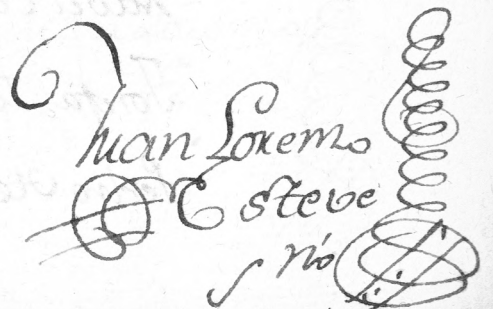 Juan Lorenzo
Esteve
nio